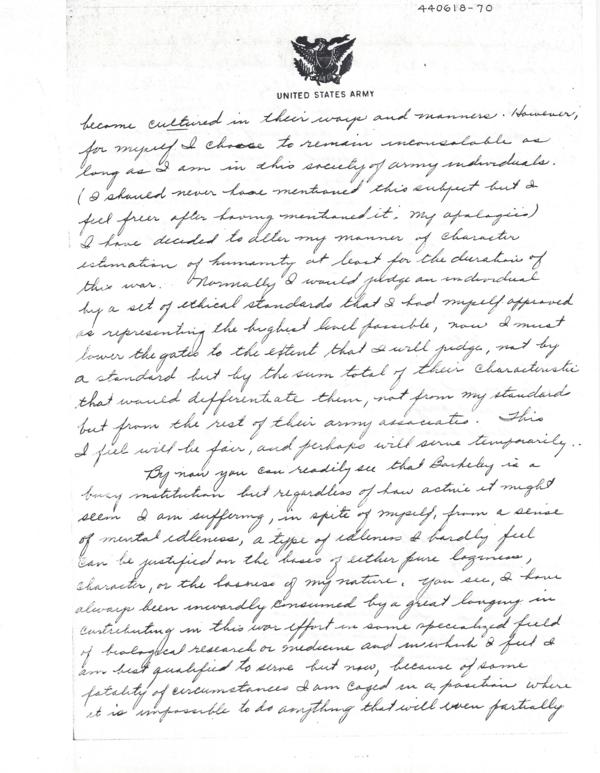 440618-70
UNITED STATES ARMY
become cultured in their ways and manners. However,
for myself I choose to remain inconsolable as
long as I am in this society of army individuals.
(I should never have mentioned this subject but I
feel freer after having mentioned it; my apologies)
I have decided to alter my manner of character
estimation of humanity at least for the duration of
this war. Normally I would judge an individual
by a set of ethical standards that I had myself approved
as representing the highest level possible, now I must
lower the gates to the extent that I will judge, not by
a standard but by the sum total of their characteristic
that would defferentiate them, not from my standards
but from the rest of their army associates. This
I feel will be fair, and perhaps will serve temporarily..
By now you can readily see that Barkeley is a
busy institution but regardless of how active it might
seem I am suffering, in spite of myself, from a sense
of mental idleness, a type of idleness I hardly feel
can be justified on the bases of either pure laziness,
character, or the baseness of my nature. You see, I have
always been inwardly consumed by a great longing in
contributing in this war effort in some specialized field
of biological research or medicine and in which I feel I
am best qualified to serve but now, because of some
fatality of circumstances I am caged in a position where
it is impossible to do anything that will even partially